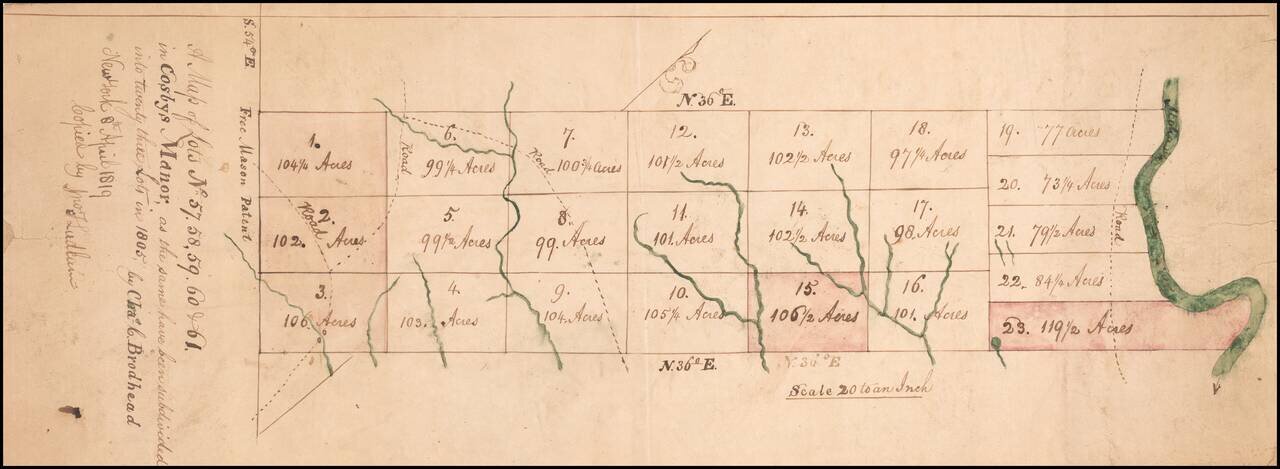 A Map of Lots No. 57, 58, 59, 60 & 61.
in Cosbys Manor, as the same have been subdivided
into twenty three Lots in 1805 by Chas. C. Brodhead
New York 8th April 1819
Copied by
S. 54° E.
Free Mason Patent
N. 36° E.
1.
104¼ Acres
6.
99¼ Acres
7.
100¾ Acres
12.
101½ Acres
13.
102½ Acres
18.
97¼ Acres
19. 77 Acres
20. 73¼ Acres
Road
Road
2.
102. Acres
Road
5.
99½ Acres
8.
99. Acres
11.
101. Acres
14.
102½ Acres
17.
98. Acres
21. 79½ Acres
Road
22. 84¼ Acres
3.
106. Acres
4.
103. Acres
9.
104. Acres
10.
105¼ Acres
15.
106½ Acres
16.
101. Acres
23. 119½ Acres
N. 36° E.
N. 36° E
Scale 20 to an Inch